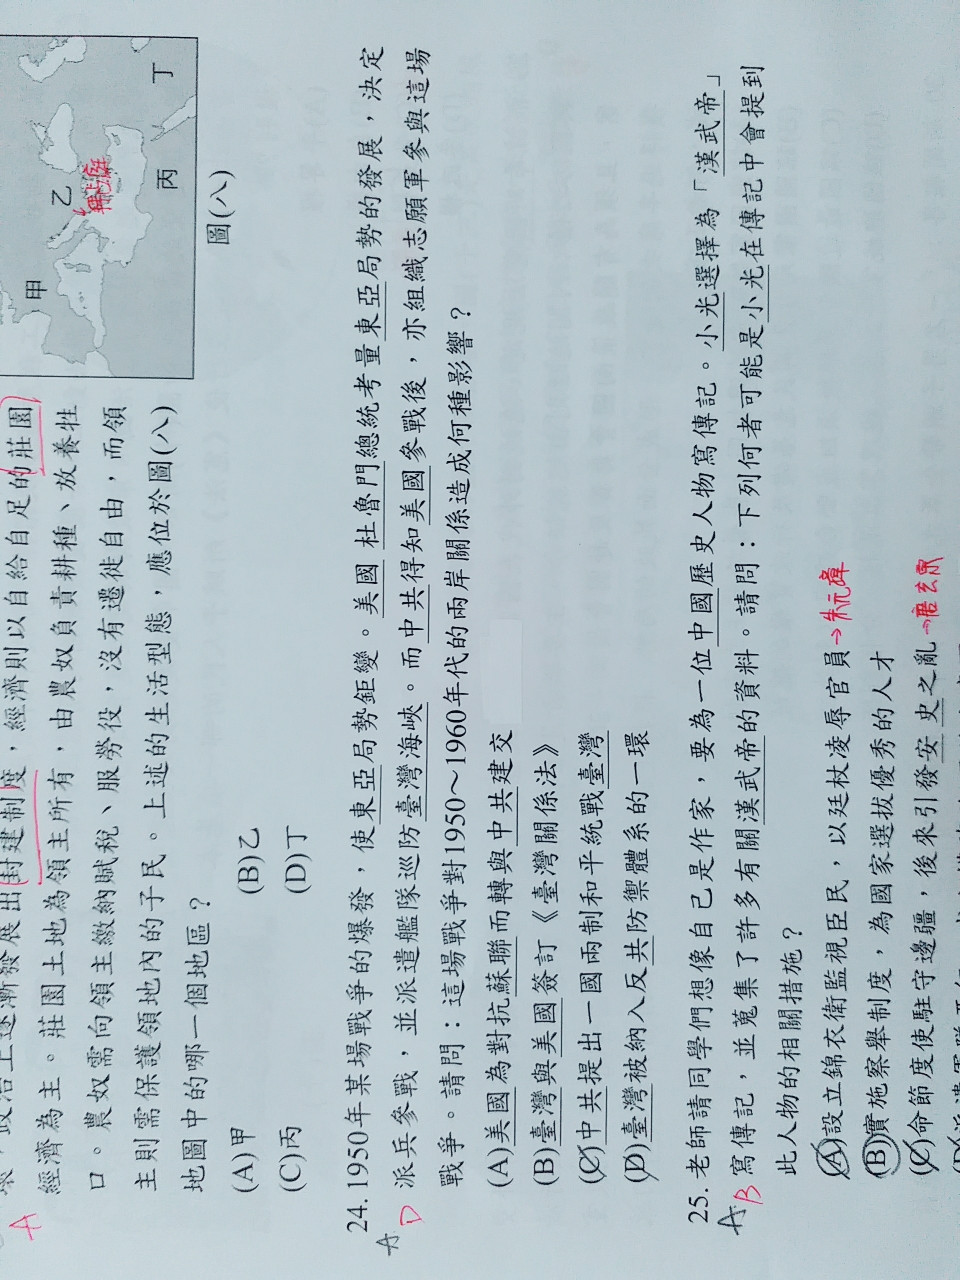 壞，政治上逐漸發展出封建制度，經濟則以自給自足的莊園
經濟為主。莊園土地為領主所有，由農奴負責耕種、放養牲
口。農奴需向領主繳納賦稅、服勞役，沒有遷徙自由，而領
主則需保護領地內的子民。上述的生活型態，應位於圖(八)
地圖中的哪一個地區？
(A)甲
(B)乙
(C)丙
(D)丁
A
甲
乙
丙
丁
圖(八)
24. 1950年某場戰爭的爆發，使東亞局勢鉅變。美國杜魯門總統考量東亞局勢的發展，決定
派兵參戰，並派遣艦隊巡防臺灣海峽。而中共得知美國參戰後，亦組織志願軍參與這場
戰爭。請問：這場戰爭對1950～1960年代的兩岸關係造成何種影響？
(A)美國為對抗蘇聯而轉與中共建交
(B)臺灣與美國簽訂《臺灣關係法》
(C)中共提出一國兩制和平統戰臺灣
(D)臺灣被納入反共防禦體系的一環
A
D
25. 老師請同學們想像自己是作家，要為一位中國歷史人物寫傳記。小光選擇為「漢武帝」
寫傳記，並蒐集了許多有關漢武帝的資料。請問：下列何者可能是小光在傳記中會提到
此人物的相關措施？
(A)設立錦衣衛監視臣民，以廷杖凌辱官員→朱元璋
(B)實施察舉制度，為國家選拔優秀的人才
(C)命節度使駐守邊疆，後來引發安 史之亂→唐玄宗
A
B